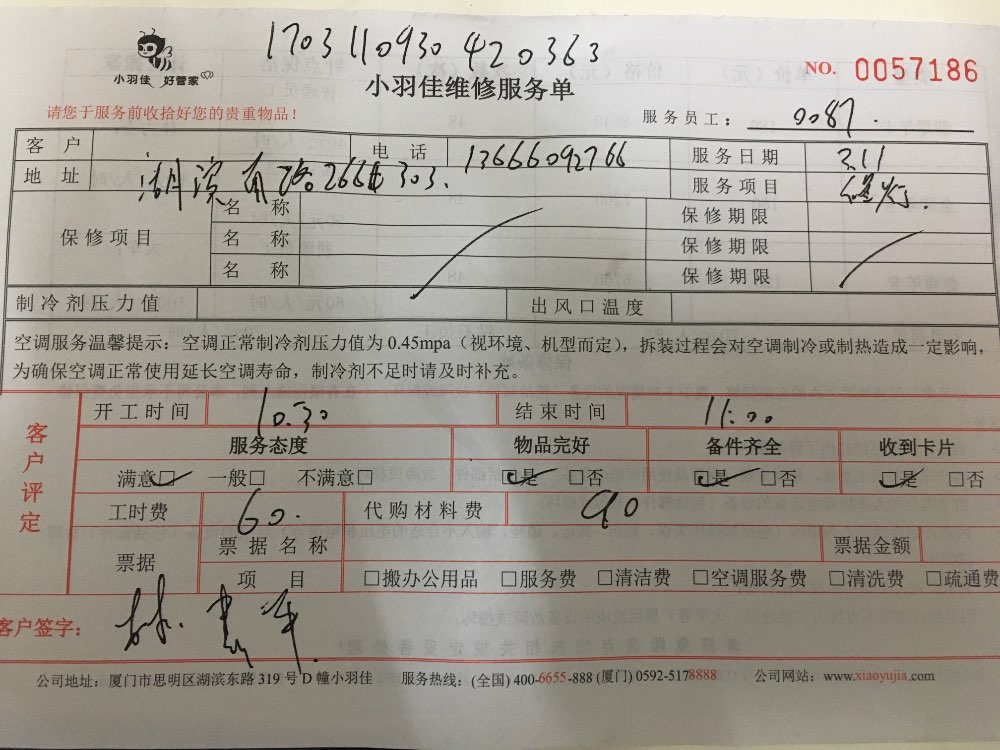 170311093042 0363
小羽佳 好管家
小羽佳维修服务单
NO. 0057186
请您于服务前收拾好您的贵重物品！
服务员工： 0087.
客户 电话 13666092766 服务日期 3.11
地址 湖滨南路266 303. 服务项目 灯.
保修项目 名称 保修期限
名称 保修期限
名称 保修期限
制冷剂压力值 出风口温度
空调服务温馨提示：空调正常制冷剂压力值为 0.45mpa（视环境、机型而定），拆装过程会对空调制冷或制热造成一定影响，
为确保空调正常使用延长空调寿命，制冷剂不足时请及时补充。
客户评定
开工时间 10:30 结束时间 11:00
服务态度 物品完好 备件齐全 收到卡片
满意☑ 一般□ 不满意□ ☑是 □否 ☑是 □否 ☑是 □否
工时费 60. 代购材料费 90
票据 票据名称 票据金额
项目 □搬办公用品 □服务费 □清洁费 □空调服务费 □清洗费 □疏通费
客户签字： 林
公司地址：厦门市思明区湖滨东路 319 号 D 幢小羽佳 服务热线：(全国) 400-6655-888 (厦门) 0592-5178888 公司网站：www.xiaoyujia.com